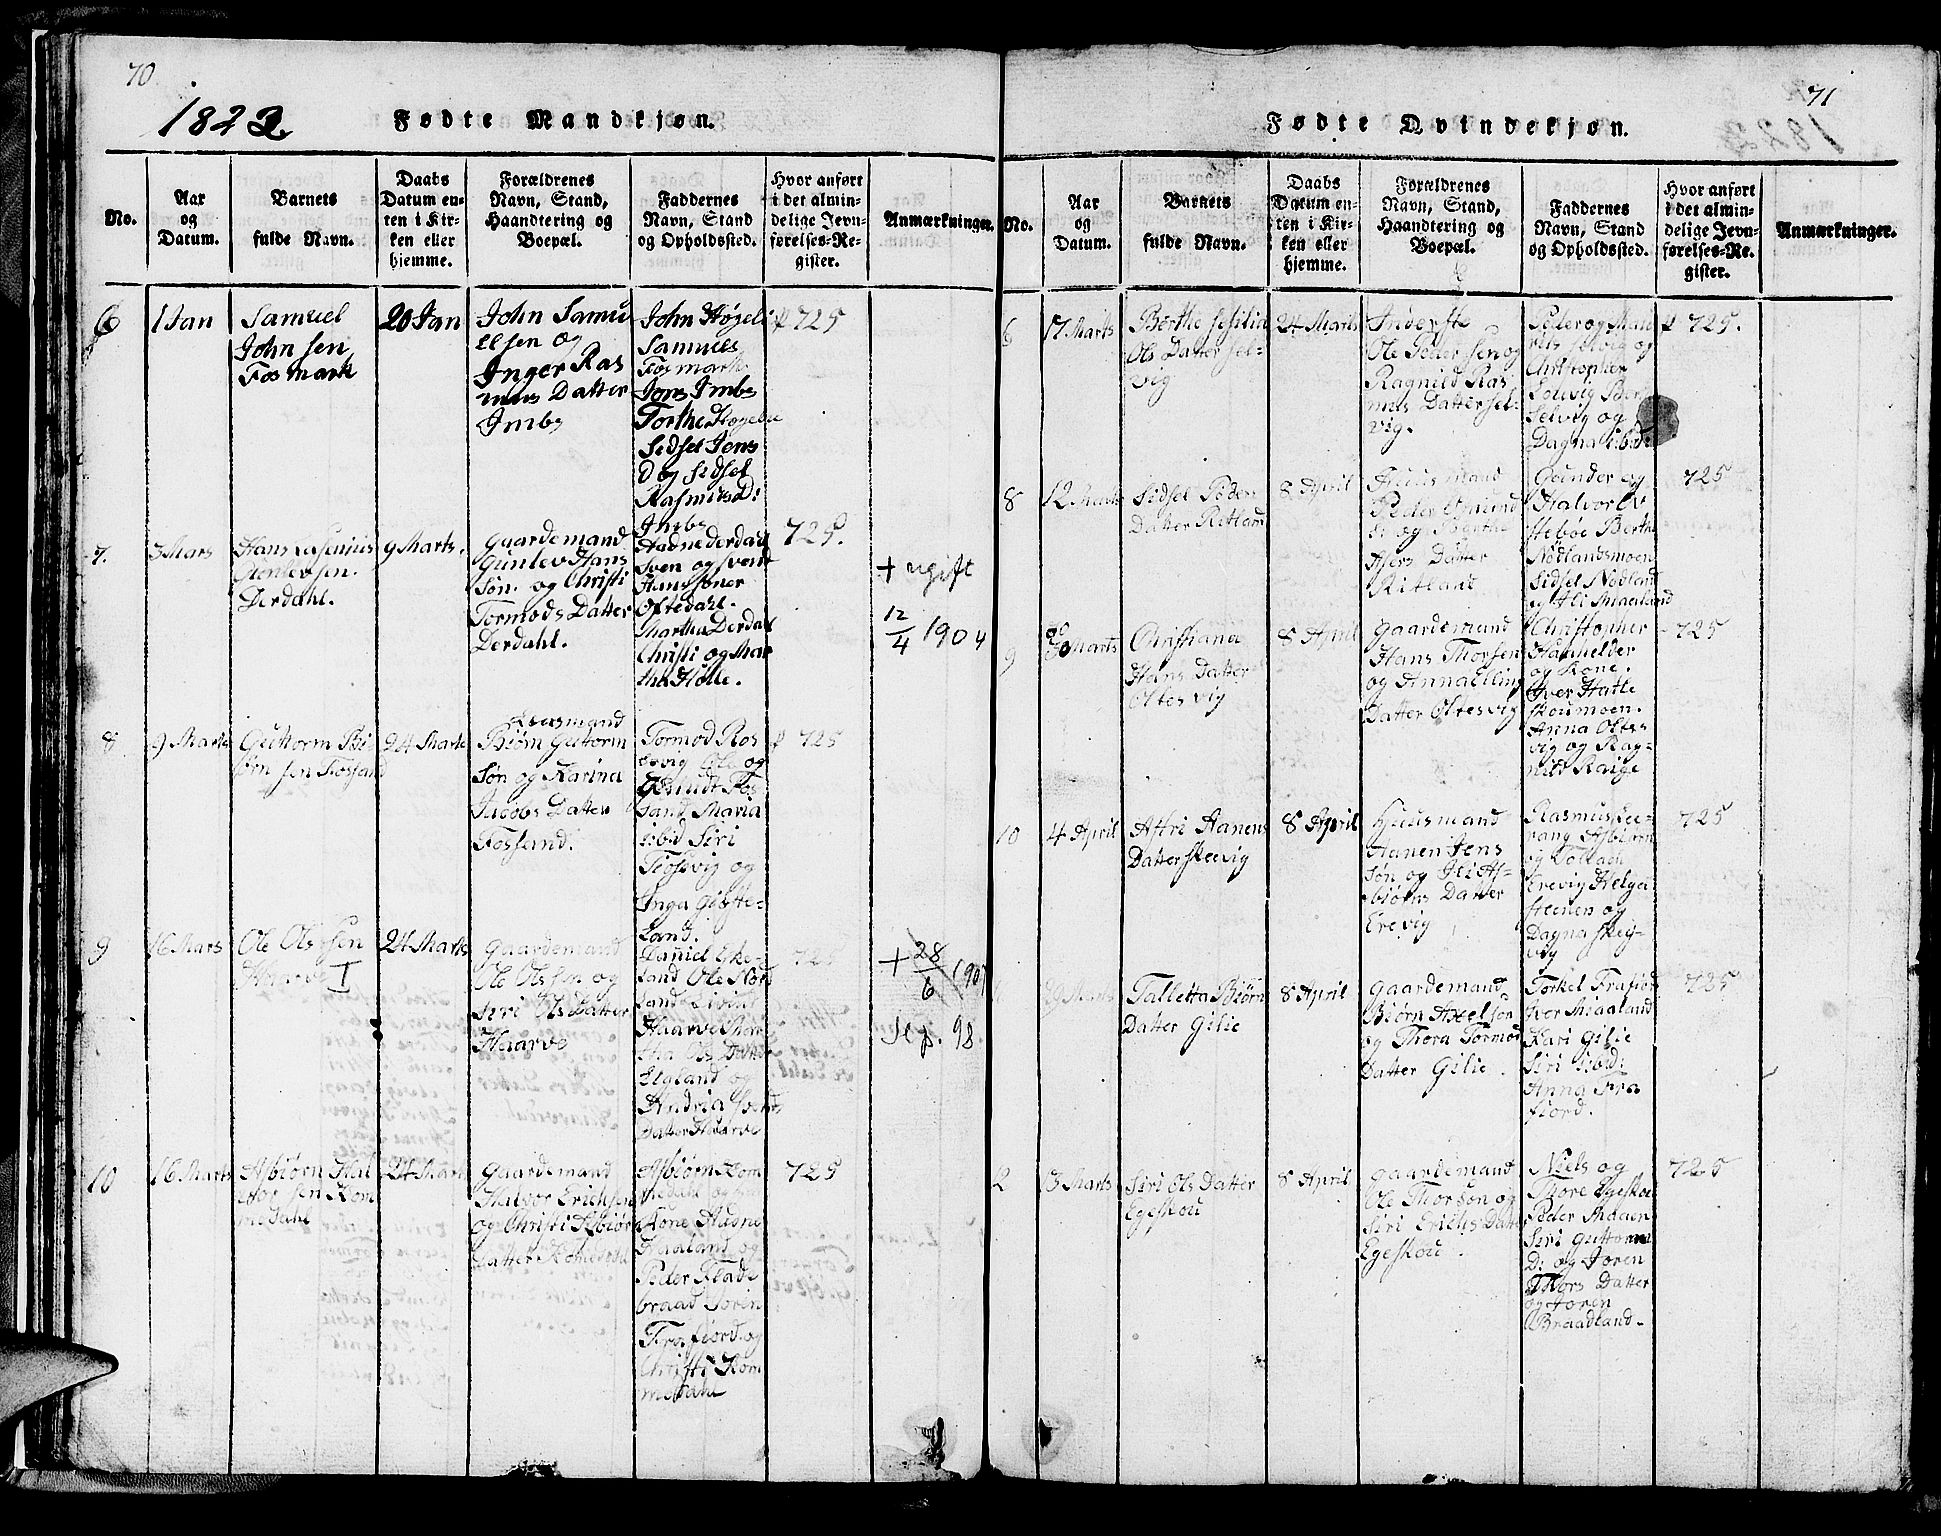 70
1822
Fødte Mandkjøn.
No.
Aar
og
Datum.
Barnets
fulde Navn.
Daabs
Datum en-
ten i Kir-
ken eller
hjemme.
Forældrenes
Navn, Stand,
Haandtering og
Boepæl.
Faddernes
Navn, Stand
og Opholdssted.
Hvor anført
i det almin-
delige Jevn-
førelses-Re-
gister.
Anmærkninger.
6
1 Jan
Samuel
John sen
Fosmark
20 Jan
John Samu
elsen og
Inger Ras
mus Datter
Imbs
John Høgeli
Samuels
Fosmark
Jons Imbs
Torthe Høgelie
Sidsel Jons
D og Sidsel
Rasmus D:
Imbs
725
7.
3 Mars
Hans
Gunlevsen.
Derdahl.
9 Marts.
Gaardemand
Gunlev Hans
Søn. og Christi
Tormods Datter
Derdahl.
Aadne Derdal
Sven og Svend
Hanssøner
Oftedahl.
Martha Derdal
Christi og Mar
tha Holle.
725.
+ ugift
12/4 1904
8
9 Marts
Guttorm Bi
ørn sen Fossand
24 Marts
Biørn Guttorm
Søn og Karina
Jacobs Datter
Fossand.
Tormod Ros
sevig Ole og
Gemundt Fos
sand Maria
ibid Siri
Tiosevig og
Inga Giøste-
Land.
725
9
16 Mars
Ole Olssen
Haarve I
24 Marts
Gaardemand
Ole Olssen og
Siri Ols Datter
Haarve
Daniel Eke-
land Ole Nord
land
Haarve Mar
tha Ols Datter
Eigland og
Andria Svends
Datter Haarve
725
+ 28/6 1901
Se p. 98.
10
16 Marts
Asbiørn Hal
vor sen Kom
medahl
24 Marts
Gaardemand
Halvor Erichsen
og Christi Asbiørn
Datter Komedahl
Asbiørn Kom
medahl og
Kone Aadne
Haaland og
Peder Flade
braad Soren
Frafiord og
Christi Kom
medahl
725
71
Fødte Qvindekjøn.
No.
Aar
og
Datum.
Barnets
fulde Navn.
Daabs
Datum en-
ten i Kir-
ken eller
hjemme.
Forældrenes
Navn, Stand,
Haandtering og
Boepæl.
Faddernes
Navn, Stand
og Opholdssted.
Hvor anført
i det almin-
delige Jevn-
førelses-Re-
gister.
Anmærkninger.
6
17 Marts
Berthe Sesilia
Ols Datter Sel-
vig
24 Marts
Inderste
Ole Peder sen og
Ragnild Ras
mus Datter Sel-
vig.
Peder og
Selvig og
Christopher
Selvig og
Dagna ibid:
725.
8
12 Marts
Sidsel Peder
Datter Ritland
8 April
Huusmand
Peder
og Berthe
Datter
Ritland
Gunder og
Halvor
stebøe Berthe
Nødlandsmoen
Sidsel Nødland
og Ili Maaland
725
9
Marts
Christiana
Hans Datter
Oltesvig
8 April
Gaardemand
Hans Thorsen
og Anna Elling
Datter Oltesvig
Christopher
og Kone.
Iver Hatle
skoumoen.
Anna Oltes-
vig og Rag-
nild Raige
725
10
4 April
Astri Aanens
Datter Skeevig
8 April
Huusmand
Aanen Jens
Søn og Ili As-
biørns Datter
Erevig
Rasmus Lee-
rang Asbiørn
og Tollach
Erevig Helga
steenen og
Dagna Skej-
vig
725
Talletta Biørn
Datter Gilie
8 April
Gaardemand
Biørn Axelsøn
og Thora Tormod
Datter Gilie.
Torkel Frafiord
Iver Miaaland
Kari Gilie
Siri ibid:
Anna Fra
fiord.
725
2
13 Marts
Siri Ols Datter
Egeskou
8 April
Gaardemand
Ole Thorson og
Siri Erichs Datte
Egeskou.
Niels og
Thore Egeskou
Peder
Siri Guttorm
D: og Joren
Thors Datter
og Joren
Braadland-
725